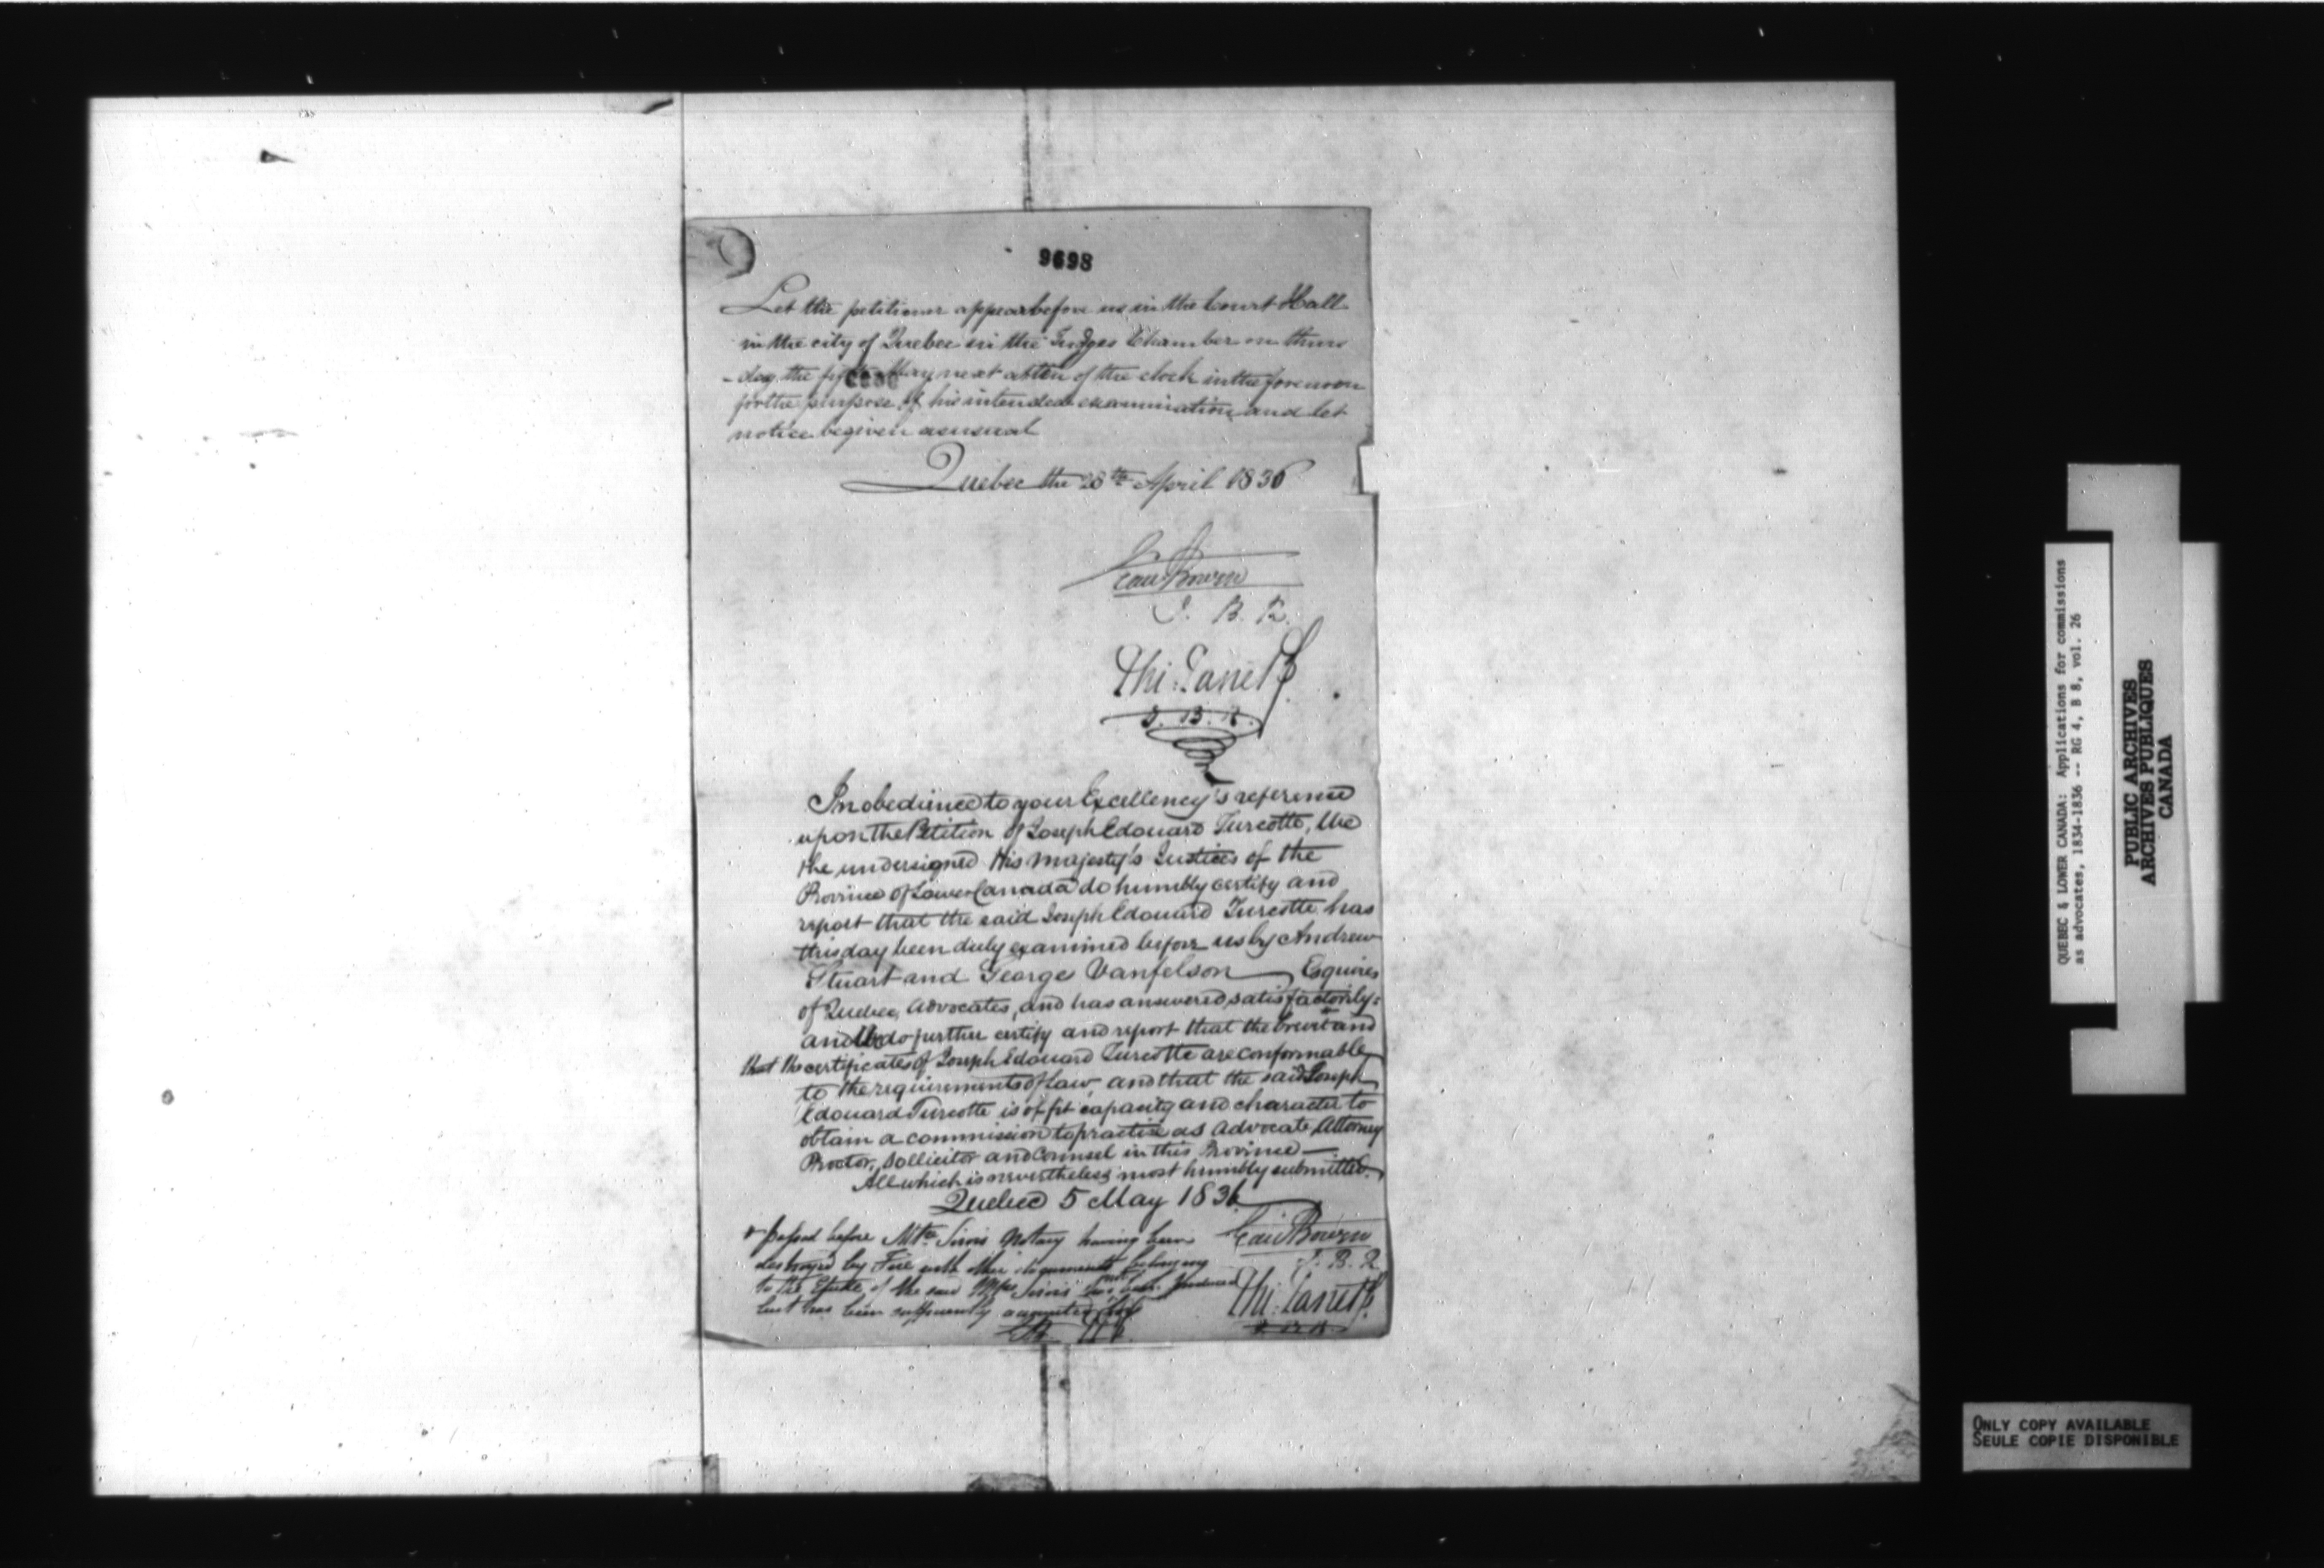 9698
Let the petitioner appear before us in the Court Hall
in the city of Quebec in the Judges Chamber on thurs
-day the fifth May next at ten of the clock in the forenoon
for the purpose of his intended examination and let
notice be given as usual
Quebec the 28th April 1836
Edw Bowen
J. B. R.
Phi: Panet
J. B. R.
In obedience to your Excellency's reference
upon the Petition of Joseph Edouard Turcotte, We
the undersigned His Majesty's Justices of the
Province of Lower Canada do humbly certify and
report that the said Joseph Edouard Turcotte has
this day been duly examined before us by Andrew
Stuart and George Vanfelson Esquires
of Quebec, Advocates, and has answered satisfactorily:
and We do further certify and report that the brevet and
that the certificates of Joseph Edouard Turcotte are conformable
to the requirements of Law, and that the said Joseph
Edouard Turcotte is of fit capacity and character to
obtain a commission to practise as Advocate Attorney
Proctor, Sollicitor and Counsel in this Province—
All which is nevertheless most humbly submitted.
Quebec 5 May 1836
passed before Mtre Sirois Notary having been
destroyed by Fire with other documents belonging
to the Estate of the said Mtre Sirois has not been produced
but has been sufficiently accounted for
Edw Bowen
J. B. R
Phi: Panet
J. B. R.
QUEBEC & LOWER CANADA: Applications for commissions
as advocates, 1834-1836 -- RG 4, B 8, vol. 26
PUBLIC ARCHIVES
ARCHIVES PUBLIQUES
CANADA
ONLY COPY AVAILABLE
SEULE COPIE DISPONIBLE